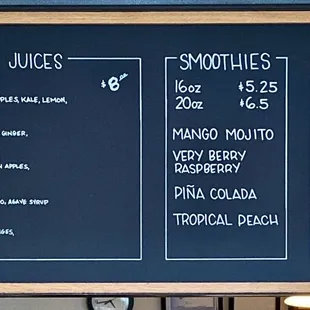 JUICES
$8.00
PLES, KALE, LEMON,
GINGER,
APPLES,
O, AGAVE SYRUP
GES,
SMOOTHIES
16oz $5.25
20oz $6.5
MANGO MOJITO
VERY BERRY
RASPBERRY
PIÑA COLADA
TROPICAL PEACH